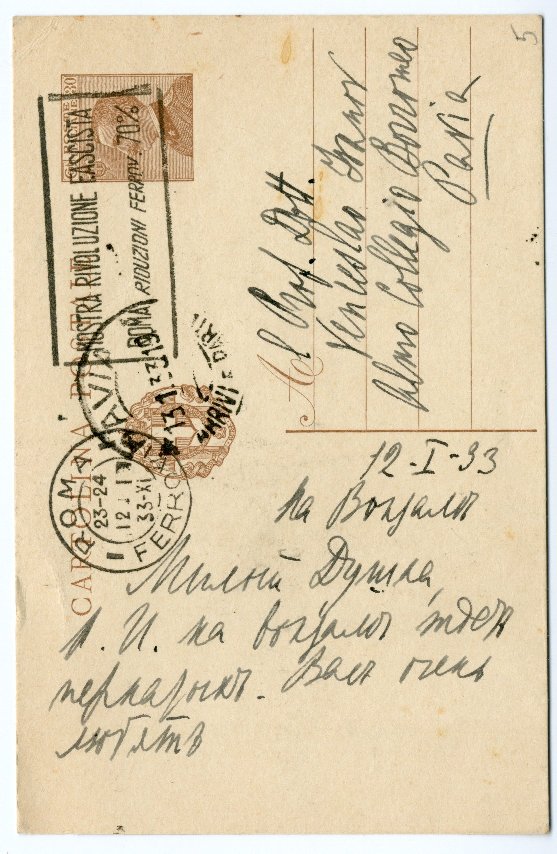 5
CARTOLINA POSTALE
MOSTRA RIVOLUZIONE FASCISTA
ROMA RIDUZIONI FERROV. 70%
PAVIA
13.1.33
ARRIVI E PARTE
ROMA
23-24
12 1
33-XI
FERROVIA
Al Prof. Dott.
Venceslao Ivanov
Almo Collegio Borromeo
Pavia
12-I-33
На Вокзалѣ
Милый Душка,
на вокзалѣ ждем
Васъ очень
любятъ